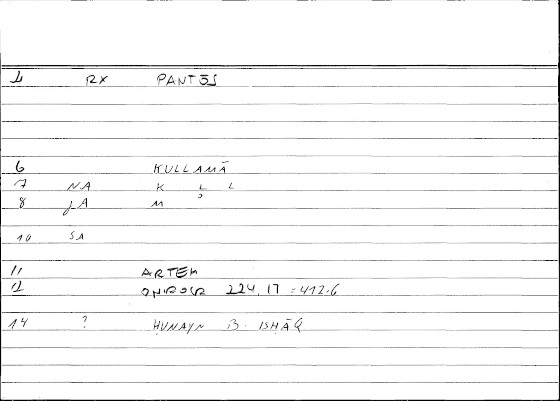 1 RX PANTŌS
6 KULLAMĀ
7 NA K L L
8 JA M
10 SA
11 ARTEM
12 ONIROCR 224, 17 = 412.6
14 ? ḤUNAYN B. ISḤĀQ